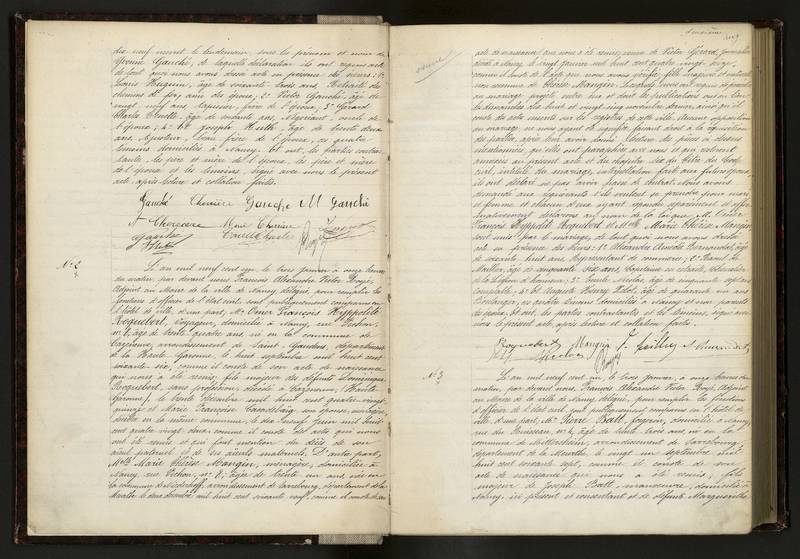 dix neuf, mort le lendemain, sous les prénoms et nom de
Germe Gauché, de laquelle déclaration ils ont requis acte
de tout quoi nous avons dressé acte en présence des sieurs: 1°
Louis Huguin, âgé de soixante trois ans, Retraité des
chemins de fer, ami des époux, 2° Victor Gauché, âgé de
vingt neuf ans, Tapissier, frère de l'époux, 3° Gérard
Charles, âgé de cinquante ans, Négociant, oncle de
l'épouse, 4° et Joseph Huth, âgé de trente deux
ans, Ajusteur, beau frère de l'épouse, ces quatre
témoins domiciliés à Nancy. Et ont, les parties contrac-
tantes, les père et mère de l'époux, les père et mère
de l'épouse et les témoins, signé avec nous le présent
acte, après lecture et collation faites.
Gauché Cherrière Gauché M Gauché
Cherrière Marie Cherrière
Gauché
J Huth
N° 2
L'an mil neuf cent un, le trois janvier à onze heures
du matin, par devant nous François Alexandre Victor Boyé,
Adjoint au Maire de la ville de Nancy, délégué, pour remplir les
fonctions d'officier de l'état civil, sont publiquement comparus en
l'hôtel de ville, d'une part, Mr Omer François Hippolyte
Roquebert, Voyageur, domicilié à Nancy, rue Pichon,
n° 8, âgé de trente quatre ans, né en la commune de
Cazaunous, arrondissement de Saint-Gaudens, département
de la Haute Garonne, le huit septembre mil huit cent
soixante-six, comme il conste de son acte de naissance
qui nous a été remis, fils majeur des défunts Dominique
Roquebert, sans profession, décédé à Cazaunous (Haute
Garonne), le trente décembre mil huit cent quatre vingt
quinze et Marie Françoise Castéblaig son épouse, ménagère,
décédée en la même commune, le dix neuf juin mil huit
cent quatre vingt deux, comme il conste des actes qui nous
ont été remis et qui font mention du décès de son
aïeul paternel et de ses aïeuls maternels. D'autre part,
Melle Marie Thérèse Mangin, ménagère, domiciliée à
Nancy, rue Pichon, n° 8, âgée de trente un ans, née en
la commune de Niederhoff, arrondissement de Sarrebourg, département de la
Meurthe le deux décembre mil huit cent soixante neuf, comme il conste de son
deuxième
acte de naissance qui nous a été remis, veuve de Victor Gérard, journalier
décédé à Nancy, le vingt janvier mil huit cent quatre vingt seize,
comme il conste de l'acte que nous avons vérifié, fille majeure et naturelle
non reconnue de Thérèse Mangin. Lesquels nous ont requis de procéder
au mariage projeté entre eux et dont les publications ont eu lieu
les dimanches dix huit et vingt cinq novembre dernier, ainsi qu'il
conste des actes inscrits sur les registres de cette ville. Aucune opposition
au mariage, ne nous ayant été signifiée, faisant droit à la réquisition
des parties, après leur avoir donné lecture des pièces ci dessus
mentionnées, qu'elles ont paraphées avec nous et qui resteront
annexées au présent acte et du chapitre six du titre du Code
civil, intitulé du mariage, interpellation faite aux futurs époux,
ils ont déclaré ne pas avoir passé de contrat. Nous avons
demandé aux requérants s'ils veulent se prendre pour mari
et femme et chacun d'eux ayant répondu, séparément et affir-
mativement, déclarons au nom de la loi que Mr Omer
François Hippolyte Roquebert et Melle Marie Thérèse Mangin,
sont unis par le mariage, de tout quoi nous avons dressé
acte en présence des sieurs: 1° Alexandre Amédée Bernardet, âgé
de soixante huit ans, Représentant de commerce, 2° Ernest de
Mailly, âgé de cinquante six ans, Capitaine en retraite, Chevalier
de la Légion d'honneur, 3° âgé de cinquante sept ans
Comptable, 4° et Joseph Henry Nicolas, âgé de quarante un ans
Boulanger, ces quatre témoins domiciliés à Nancy et non parents
des époux. Et ont, les parties contractantes et les témoins, signé avec
nous le présent acte, après lecture et collation faites.
Roquebert Mangin E. de Mailly A Bernardet
Nicolas
N° 3
L'an mil neuf cent un, le trois janvier, à onze heures du
matin, par devant nous, François Alexandre Victor Boyé, Adjoint
au Maire de la ville de Nancy, délégué, pour remplir les fonctions
d'officier de l'état civil, sont publiquement comparus en l'hôtel de
ville, d'une part, Mr Pierre Batt, forgeron, domicilié à Nancy
rue du Ruisseau, n° 2, âgé de trente trois ans, né en la
commune de Mittersheim, arrondissement de Sarrebourg,
département de la Meurthe, le vingt un septembre mil
huit cent soixante sept, comme il conste de son
acte de naissance qui nous a été remis, fils
majeur de Joseph Batt, manoeuvre, domicilié à
Nancy, ici présent et consentant et de défunte Marguerite